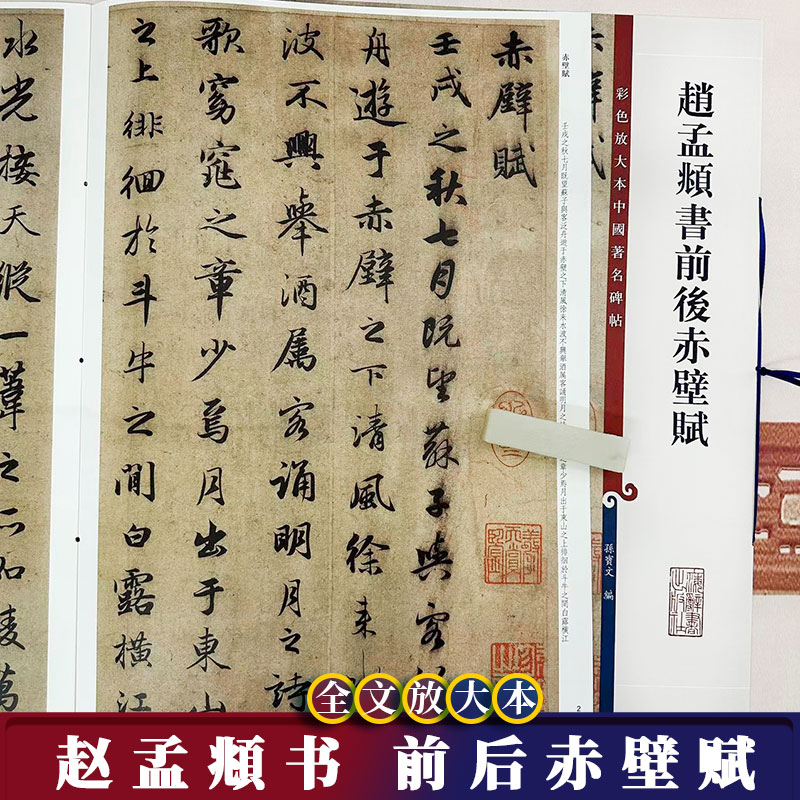 趙孟頫書前後赤壁賦
彩色放大本中國著名碑帖
孫寶文 編
赤壁賦
壬戌之秋七月既望蘇子與客泛舟遊于赤壁之下清風徐来水波不興舉酒属客誦明月之
之章少焉月出于東山之上徘徊於斗牛之間白露橫江
2
赤壁賦
壬戌之秋七月既望蘇子與客
舟遊于赤壁之下清風徐来
波不興舉酒属客誦明月之詩
歌窈窕之章少焉月出于東山
之上徘徊於斗牛之間白露橫江
水光接天縱一葦之所如凌萬
全文放大本
赵孟頫书 前后赤壁赋